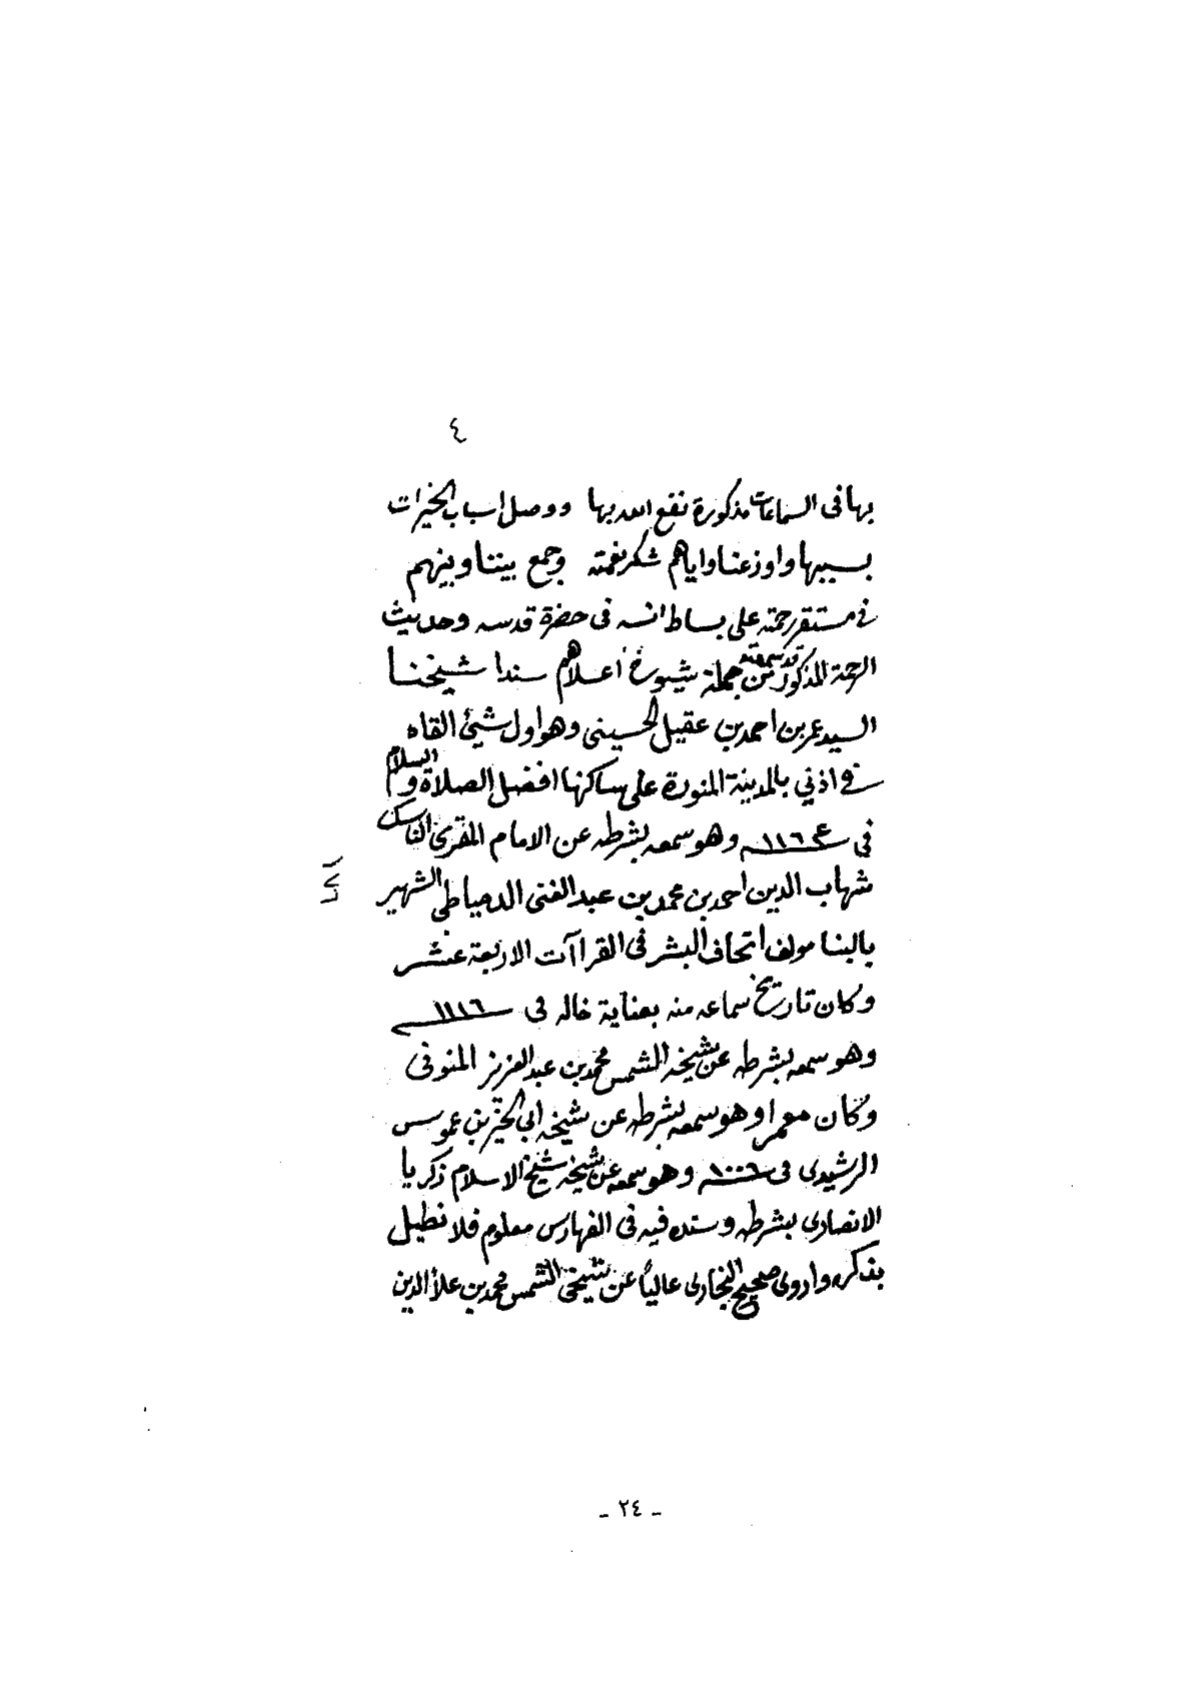 ٤
بها فى السماعات مذكورة نفع الله بها ووصل اسباب الخيرات
بسببها واوزعنا واياهم شكر نعمته وجمع بيننا وبينهم
فى مستقر رحمته على بساط انسه فى حضرة قدسه وحديث
الرحمة المذكور قد سمعته من جملة شيوخ اعلاهم سندا شيخنا
السيد عمر بن احمد بن عقيل الحسينى وهو اول شيئ القاه
فى اذني بالمدينة المنورة على ساكنها افضل الصلاة والسلام
فى ١١٦٤ وهو سمعه بشرطه عن الامام المقرئ الناسك
شهاب الدين احمد بن محمد بن عبد الغنى الدمياطى الشهير
بالبنا مولف اتحاف البشر فى القراآت الاربعة عشر
وكان تاريخ سماعه منه بعناية خاله فى ١١١٦
وهو سمعه بشرطه عن شيخه الشمس محمد بن عبد العزيز المنوفى
وكان معمرا وهو سمعه بشرطه عن شيخه ابى الخير بن عموس
الرشيدى فى ١٠٠٦ وهو سمعه عن شيخه شيخ الاسلام زكريا
الانصارى بشرطه وسنده فيه فى الفهارس معلوم فلا نطيل
بذكره واروى صحيح البخارى عالياً عن شيخى الشمس محمد بن علأ الدين
- ٢٤ -